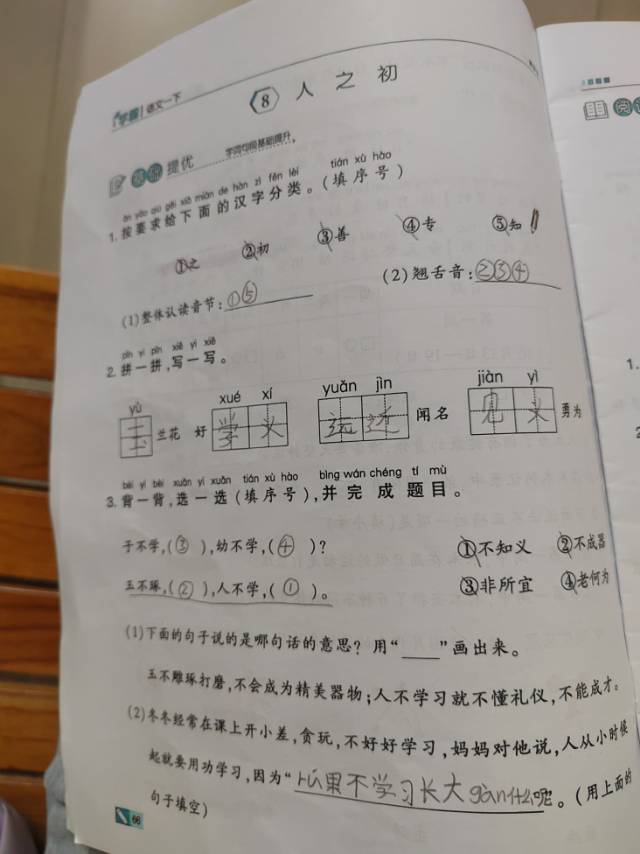 学霸 语文一下
⑧ 人之初
提优 字词句段基础提升
àn yāo qiú gěi xià miàn de hàn zì fēn lèi tián xù hào
1. 按要求给下面的汉字分类。(填序号)
①之 ②初 ③善 ④专 ⑤知
(1)整体认读音节:①⑤ (2)翘舌音:②③④
pīn yi pīn xiě yi xiě
2. 拼一拼,写一写。
yù xué xí yuǎn jìn jiàn yì
玉 兰花 好 学 义 远 近 闻名 见 义 勇为
bèi yi bèi xuǎn yi xuǎn tián xù hào bìng wán chéng tí mù
3. 背一背,选一选(填序号),并完成题目。
子不学,(③),幼不学,(④)? ①不知义 ②不成器
玉不琢,(②),人不学,(①)。 ③非所宜 ④老何为
(1)下面的句子说的是哪句话的意思? 用“___”画出来。
玉不雕琢打磨,不会成为精美器物;人不学习就不懂礼仪,不能成才。
(2)冬冬经常在课上开小差,贪玩,不好好学习,妈妈对他说,人从小时候
起就要用功学习,因为“rú果不学习长大gàn什么呢。(用上面的
句子填空)
66
1.